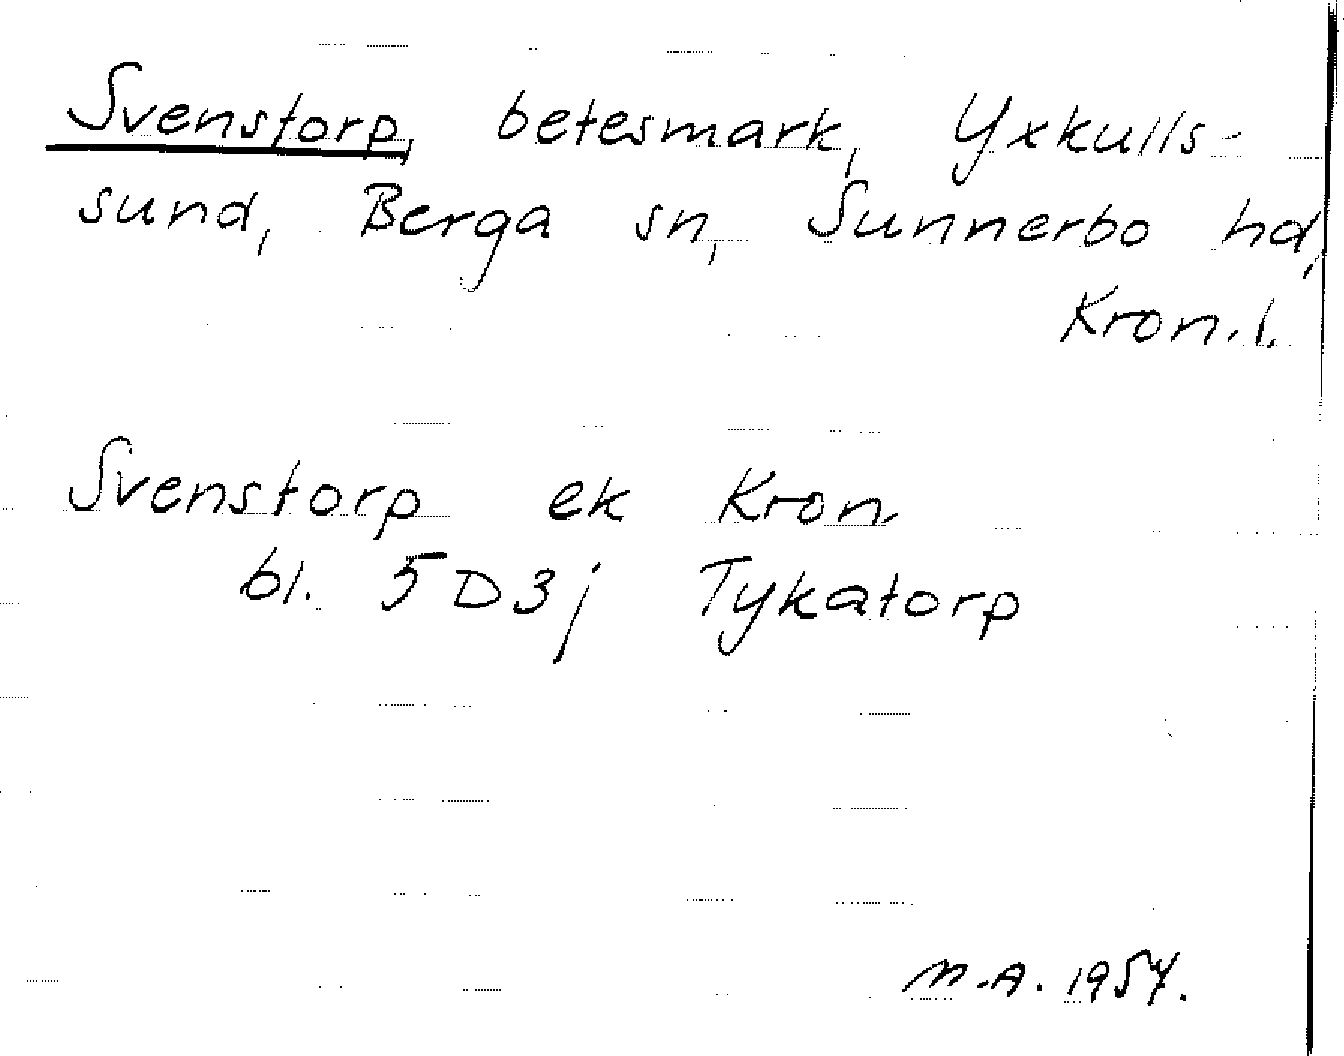 Svenstorp, betesmark, Yxkulls-
sund, Berga sn, Sunnerbo hd,
Kron. l.
Svenstorp ek Kron.
bl. 5D3j Tykatorp
M.A. 1954.